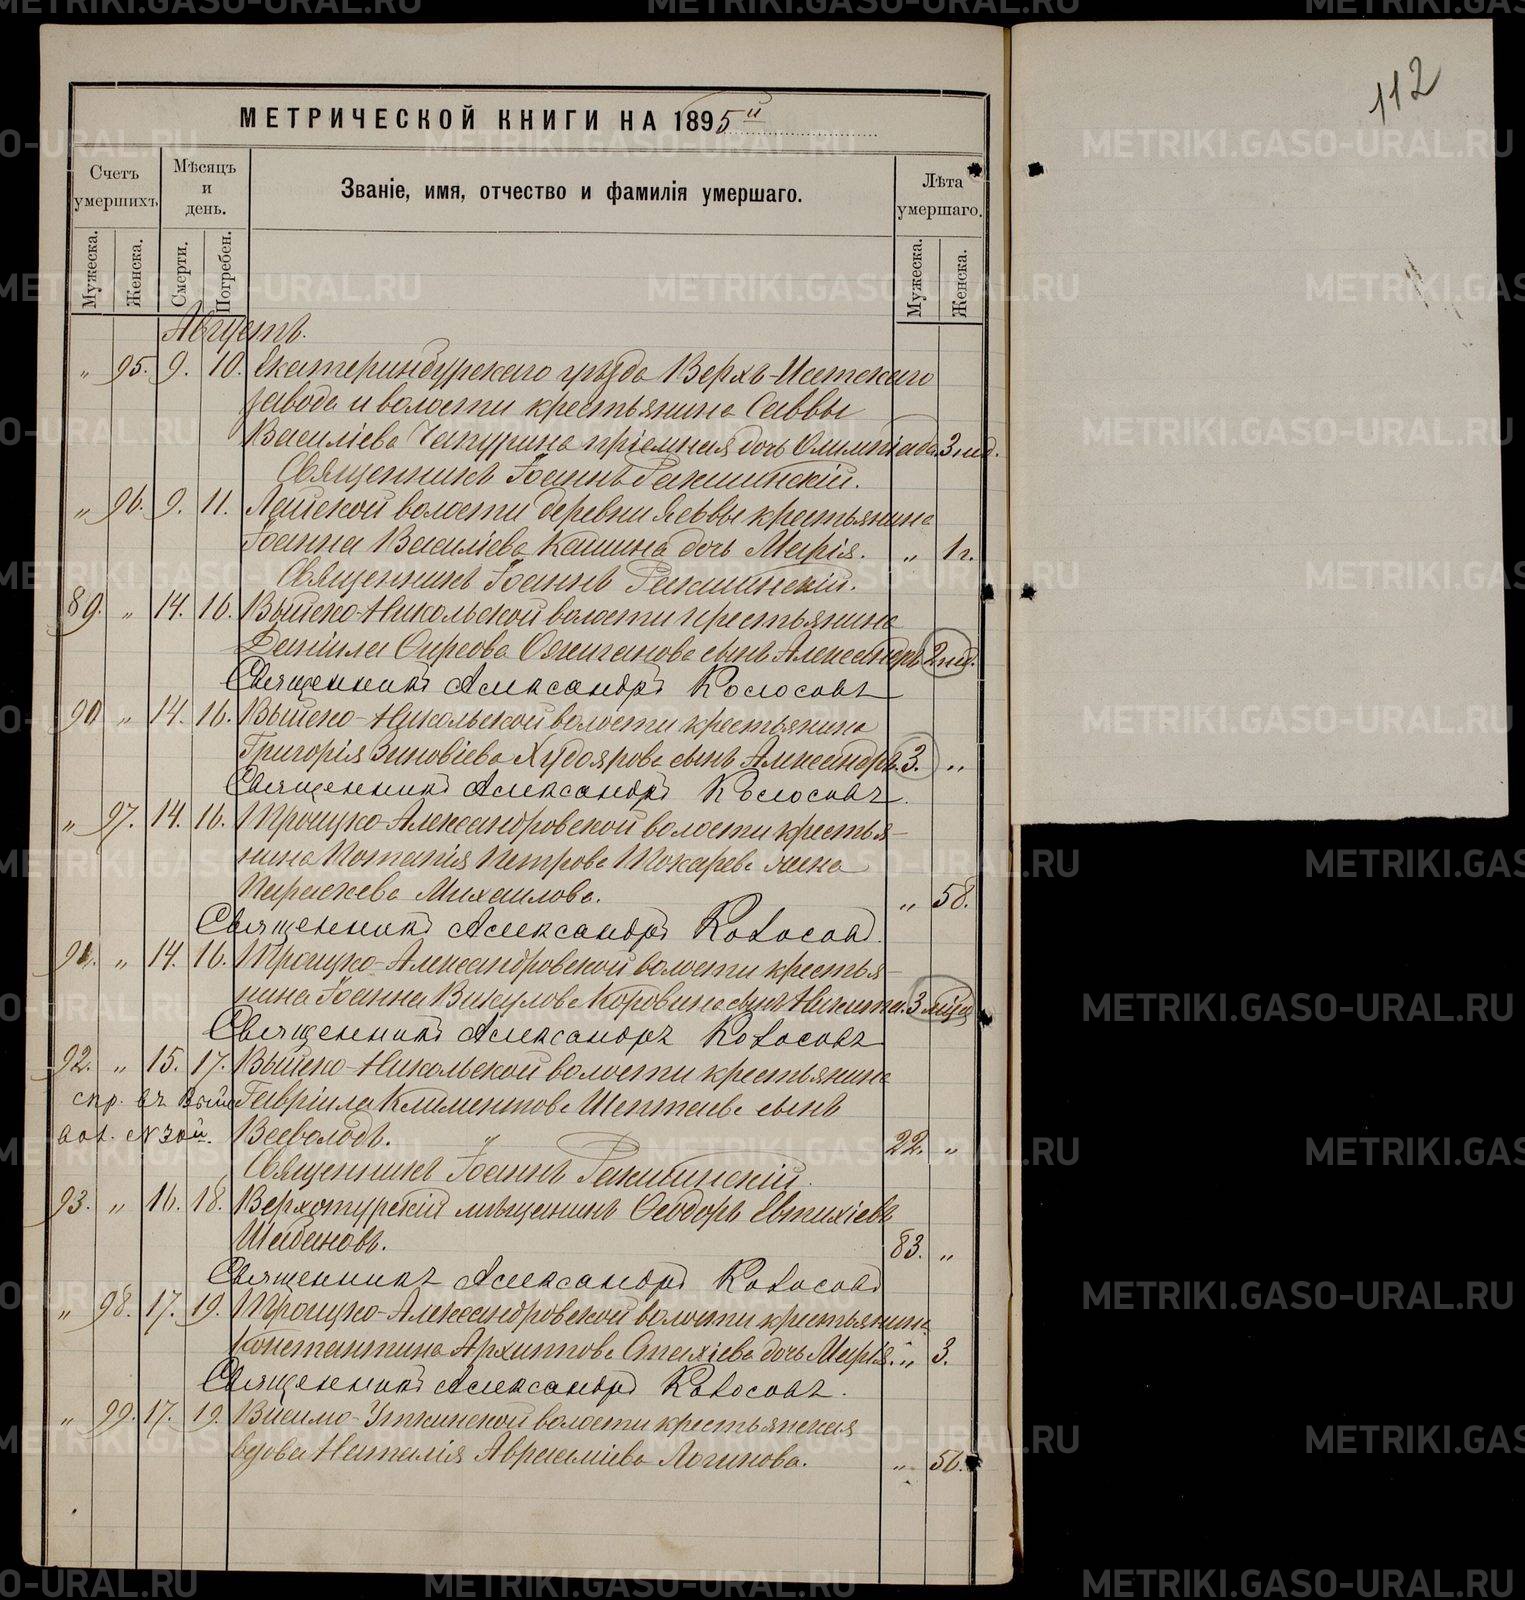 112
МЕТРИЧЕСКОЙ КНИГИ НА 1895й
Счетъ умершихъ.
Мѣсяцъ и день.
Званіе, имя, отчество и фамилія умершаго.
Лѣта умершаго.
Мужеска. Женска. Смерти. Погребен. Мужеска. Женска.
Августъ.
„ 95. 9. 10. Екатеринбургскаго уѣзда Верхъ-Исетскаго
завода и волости крестьянина Саввы
Василіева Чапурина пріемная дочь Олимпіада. 3 нед.
Священникъ Іоаннъ
„ 96. 9. 11. Лайской волости деревни крестьянина
Іоанна Василіева Кашина дочь Марія. „ 1 г.
Священникъ Іоаннъ
89. „ 14. 16. Выйско-Никольской волости крестьянина
Даніила сынъ Александръ 2 нед.
Священникъ Александръ Колосовъ
90 „ 14. 16. Выйско-Никольской волости крестьянина
Григорія Зиновіева Худоярова сынъ Александръ. 3. „
Священникъ Александръ Колосовъ.
„ 97. 14. 16. Троицко-Александровской волости крестья-
нина Потапія Петрова Токарева жена
Параскева Михаилова. „ 58.
Священникъ Александръ Колосовъ.
91. „ 14. 16. Троицко-Александровской волости крестья-
нина Іоанна Викулова Коровина сынъ Никита. 3 мѣса
Священникъ Александръ Колосовъ
92. „ 15. 17. Выйско-Никольской волости крестьянина
спр. въ Гавріила Климентова Шептаева сынъ
Всеволодъ. „ 22. „
Священникъ Іоаннъ
93. „ 16. 18. Верхотурскій мѣщанинъ Ѳеодоръ Евтихіевъ
Шабановъ. 83. „
Священникъ Александръ Колосовъ
„ 98. 17. 19. Троицко-Александровской волости крестьянина
Константина Архипова Стахіева дочь Марія. „ 3.
Священникъ Александръ Колосовъ.
„ 99. 17. 19. Висимо-Уткинской волости крестьянская
вдова Наталія Авраамiева Логинова. „ 56.
METRIKI.GASO-URAL.RU